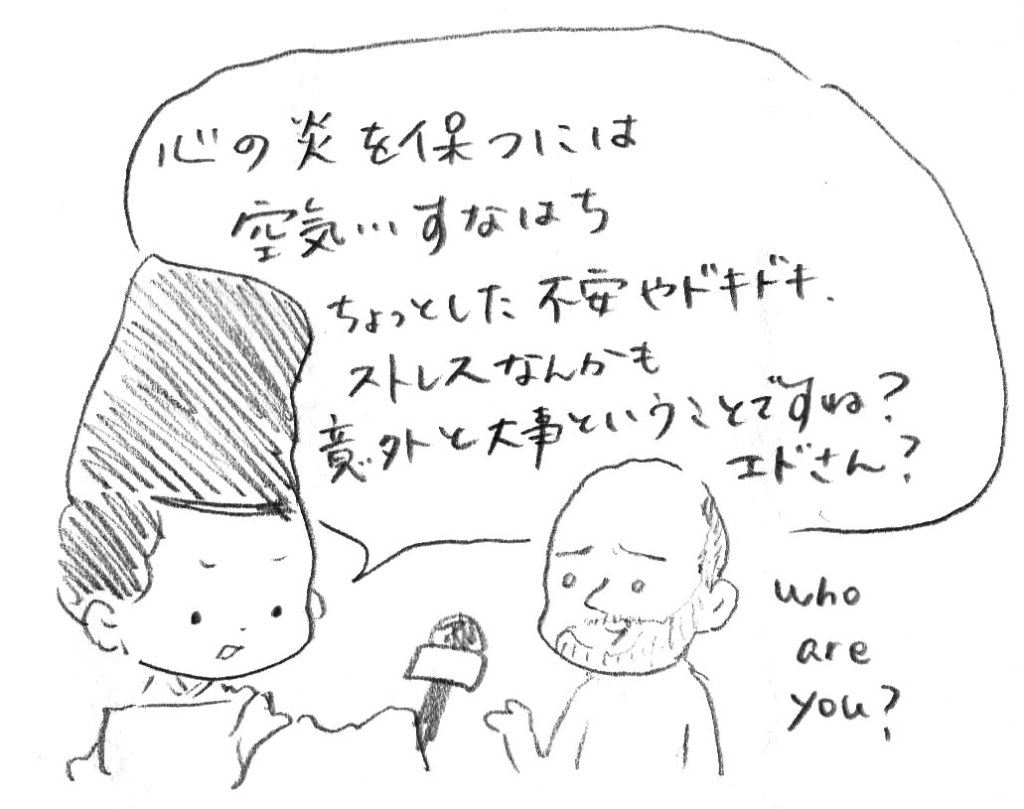 心の炎を保つには
空気…すなはち
ちょっとした不安やドキドキ、
ストレスなんかも
意外と大事ということですね？
エドさん？
who
are
you?